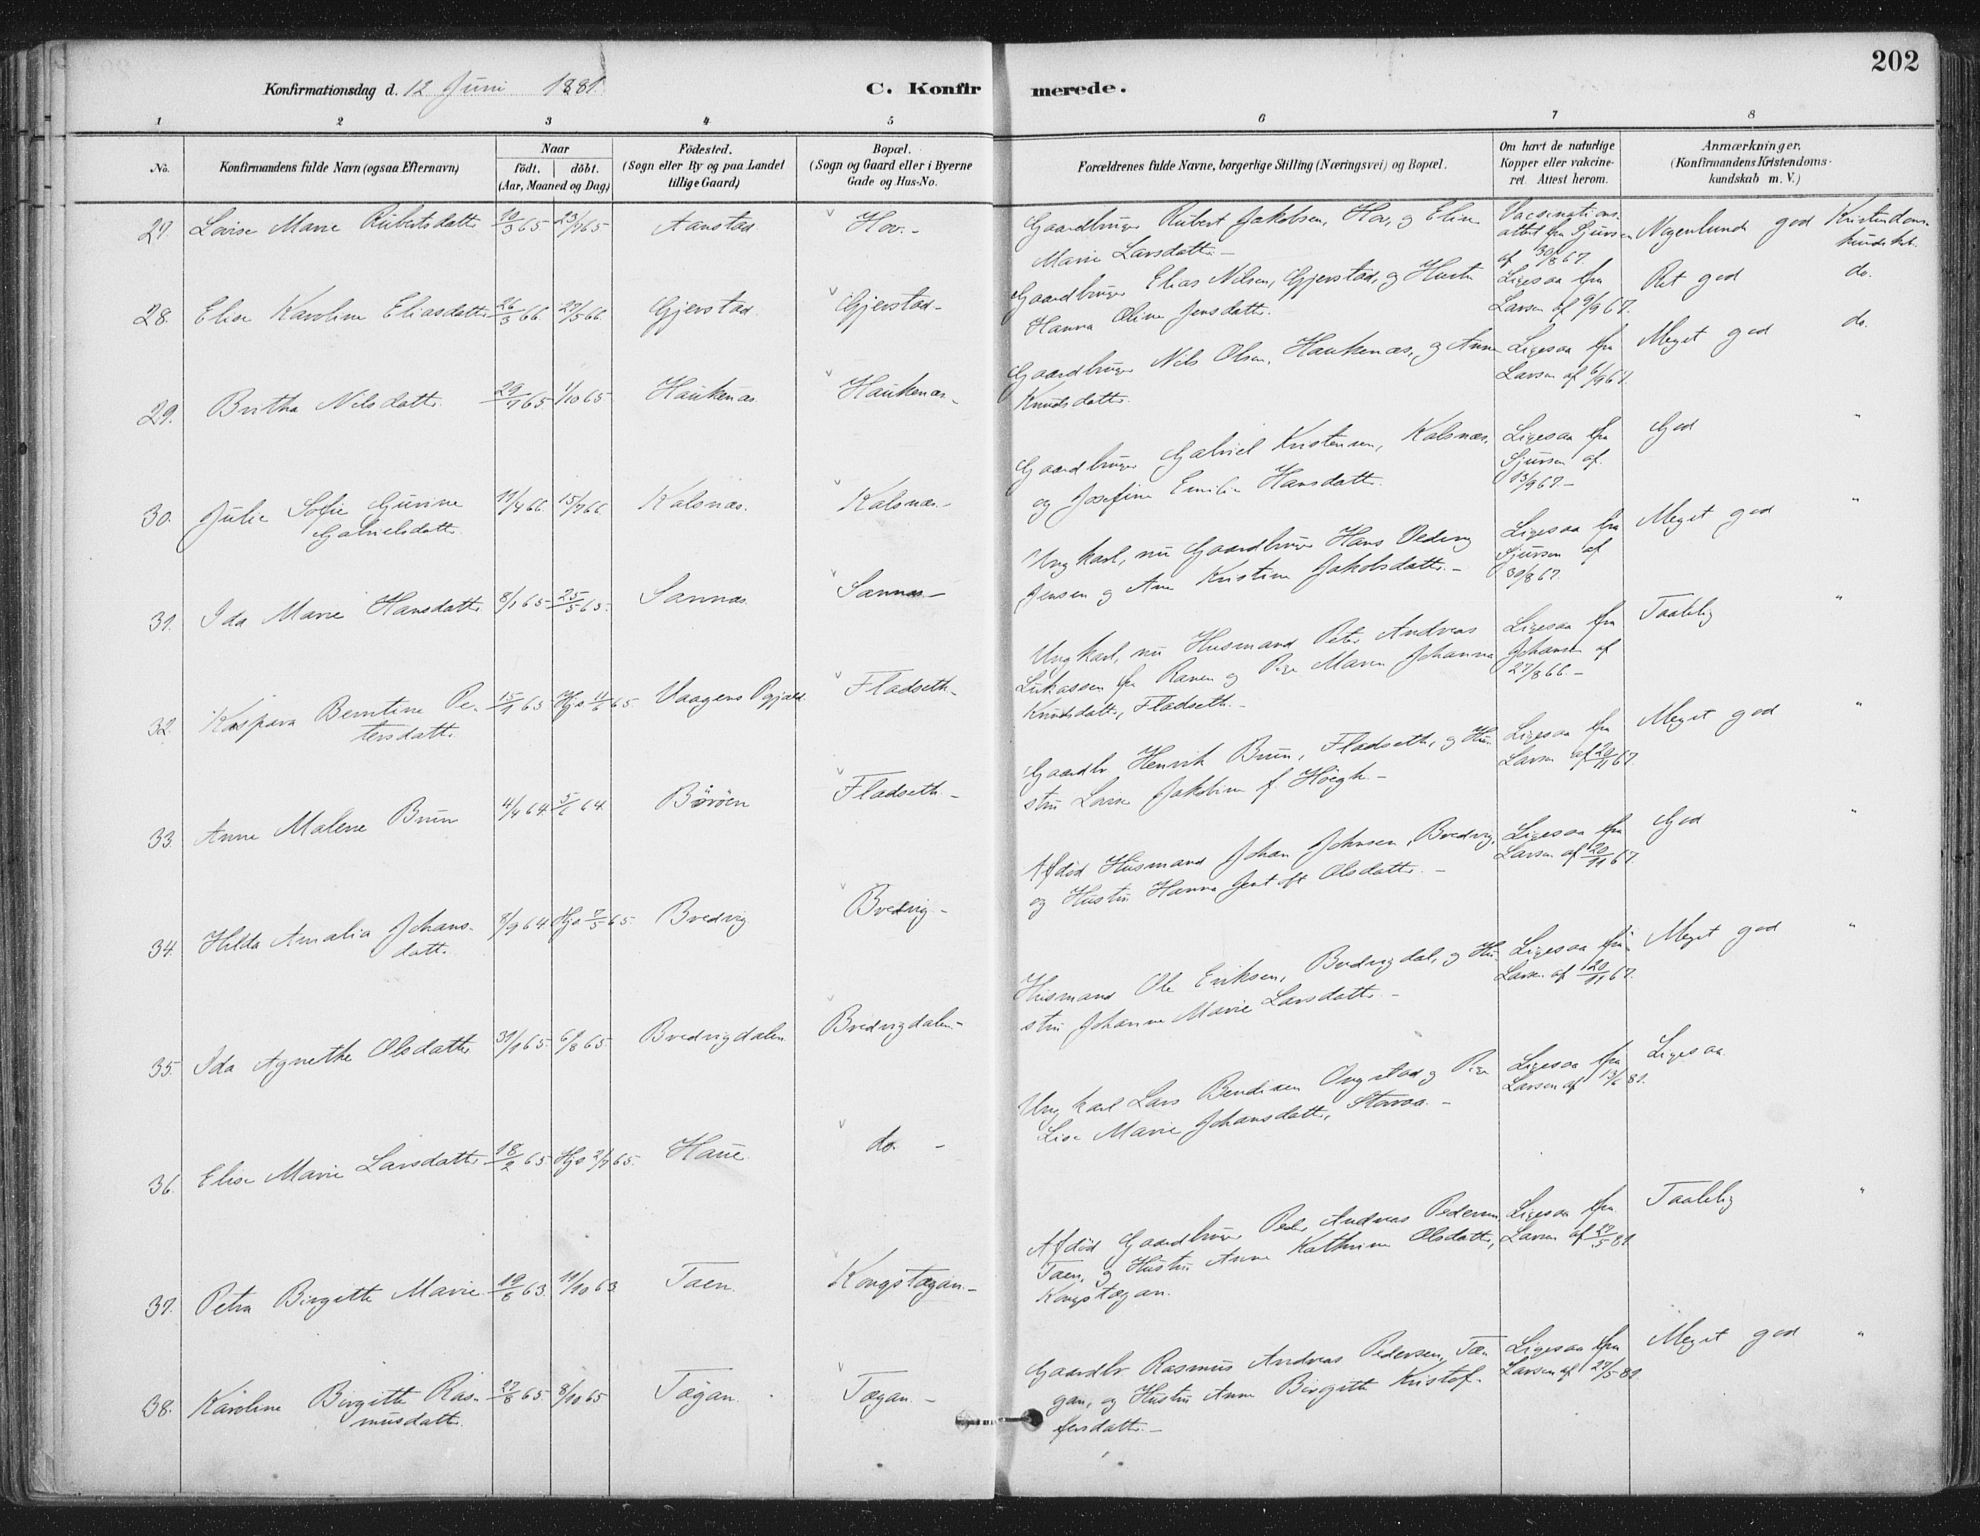 202
Konfirmationsdag d. 12 Juni 1881.
C. Konfirmerede.
1 2 3 4 5 6 7 8
No.
Konfirmandens fulde Navn (ogsaa Efternavn)
Naar
födt. döbt.
(Aar, Maaned og Dag)
Födested.
(Sogn eller By og paa Landet
tillige Gaard)
Bopæl.
(Sogn og Gaard eller i Byerne
Gade og Hus-No.
Forældrenes fulde Navne, borgerlige Stilling (Næringsvei) og Bopæl.
Om havt de naturlige
Kopper eller vakcine-
ret. Attest herom.
Anmærkninger.
(Konfirmandens Kristendoms-
kundskab m. V.)
27. Lovise Marie Rubertsdatter 10/3 65 23/4 65 Aanstad Hov.-
Gaardbruger Rubert Jakobsen, Hov, og Elen
Marie Larsdatter.-
Vaccinations-
attest fra Sjursen
af 30/8 67.
Nogenlunde god Kristendoms-
kundskab.
28. Elise Karoline Eliasdatter 26/3 66 27/5 66 Gjerstad. Gjerstad-
Gaardbruger Elias Nilsen, Gjerstad, og Hustru
Hanna Oline Jensdatter.
Ligesaa fra
Larsen af 9/9 67.
Ret god do.
29. Britha Nilsdatter 29/7 65 1/10 65 Haukenæs. Haukenæs-
Gaardbruger Nils Olsen, Haukenæs, og Anne
Knudsdatter.
Ligesaa fra
Larsen af 6/9 67.
Meget god do.
30. Julie Sofie Gurine
Gabrielsdatter. 11/4 66. 15/7 66. Kalsnæs. Kalsnæs-
Gaardbruger Gabriel Kristensen, Kalsnæs,
og Josefine Emilie Hansdatter.
Ligesaa fra
Sjursen af
13/9 67-
God "
31. Ida Marie Hansdatter 8/1 65 25/5 65. Sannæs Sannæs-
Ungkarl, nu Gaardbruger Hans Peder
Jensen og Ane Kristine Jakobsdatter.-
Ligesaa fra
Sjursen af
30/8 67.
Meget god "
32. Kaspara Berntine Pe-
tersdatter. 15/1 65 Hjd 11/6 65. Vaagens Pgjæld. Fladseth-
Ungkarl, nu Husmand Peter Andreas
Lukassen fra Ranen og Pige Maren Johanna
Knudsdatter, Fladseth.-
Ligesaa fra
Johansen af
27/8 66.-
Taalelig "
33. Anne Malene Bruun 4/4 64. 5/6 64. Böröen Fladseth-
Gaardbr. Henrik Bruun, Fladseth, og Hu-
stru Lovise Jakobine f. Höegh.-
Ligesaa fra
Larsen af 20/11 67.
Meget god "
34. Hilda Amalia Johans-
datter. 8/9 64. Hjd 7/5 65. Bredvig Bredvig-
Afdöd Husmand Johan Johnsen, Bredvig,
og Hustru Hanna Olsdatter.-
Ligesaa fra
Larsen af 20/11 67.
God "
35. Ida Agnethe Olsdatter 31/1 65. 6/8 65. Bredvigdalen Bredvigdalen-
Husmand Ole Eriksen, Bredvigdal, og Hu-
stru Johanne Marie Larsdatter.-
Ligesaa fra
Larsen af 20/11 67.
Meget god "
36. Elise Marie Larsdatter 18/2 65. Hjd 2/7 65. Haue. do. -
Ungkarl Lars Bendixen Ongstad og Pige
Lise Marie Johansdatter, Storraa.-
Ligesaa fra
Larsen af 13/6 81.
Ligesaa.
37. Petra Birgitte Marie 19/8 63. 11/10 63. Taen. Kongstægan.-
Afdöd Gaardbruger Peder Andreas Pedersen
Taen, og Hustru Anne Kathrine Olsdatter,
Kongstægan.
Ligesaa fra
Larsen af 27/5 81.
Taalelig "
38. Karoline Birgitte Ras-
musdatter. 27/8 65. 8/10 65. Tægan. Tægan-
Gaardbr Rasmus Andreas Pedersen, Tæ-
gan, og Hustru Anne Birgitte Kristof-
fersdatter.-
Ligesaa fra
Larsen af 27/5 81.
Meget god "